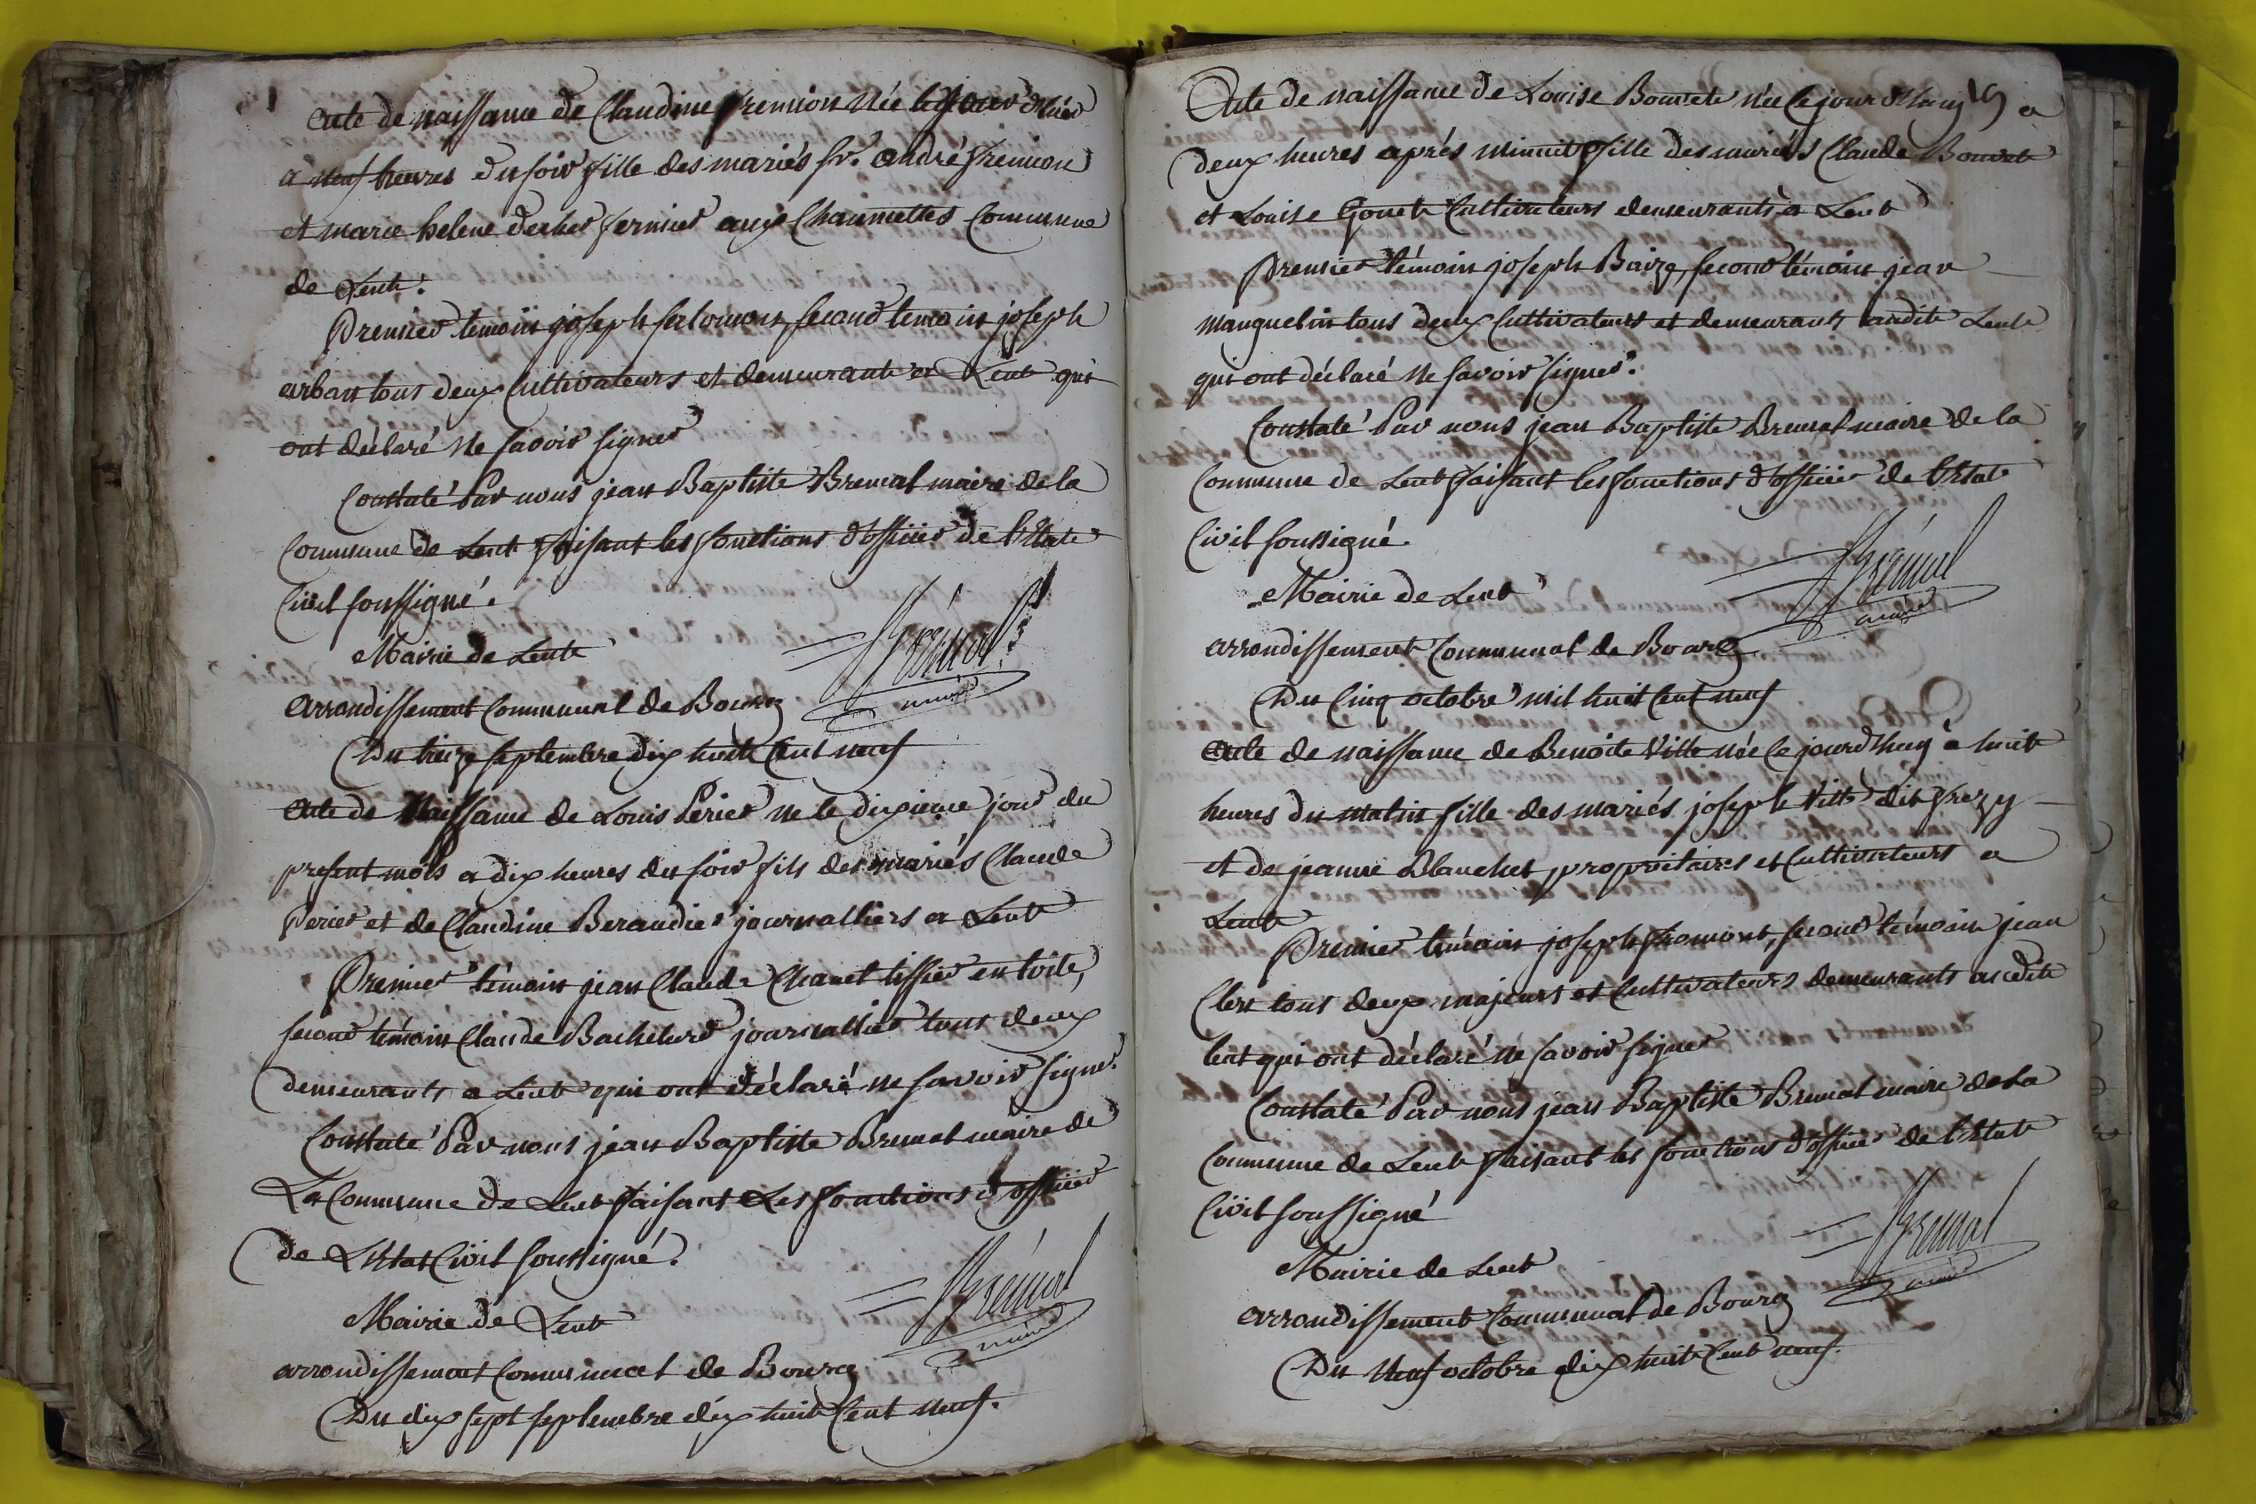 acte de naissance de Claudine fremion Née le jour d'hier
a neuf heures du soir fille des mariés sr. andré fremion
et marie helene fermier aux Chaumettes Commune
de Lent.
Premier temoin joseph salomon, second temoin joseph
arban tous deux Cultivateurs et demeurants a Lent qui
ont déclaré Ne savoir signer
Constaté Par nous jean Baptiste Bremal maire de la
Commune de Lent faisant les fonctions d'officier de l'Etat
Civil soussigné.
Brémal
maire
Mairie de Lent
arrondissement Communal de Bourg
Du treize septembre dix huit Cent neuf
acte de Naissance de Louis Perier né le dixieme jour du
present mois a dix heures du soir fils des mariés Claude
Perier et de Claudine Beraudier journalliers a Lent
Premier témoin jean Claude Chanel tissier en toile,
second témoin Claude Bachelard journallier tous deux
demeurants a Lent qui ont déclaré ne savoir signer.
Constaté Par nous jean Baptiste Bremal maire de
La Commune de Lent faisant Les fonctions d'officier
de L'Etat Civil soussigné.
Brémal
maire
Mairie de Lent
arrondissement Communal de Bourg
Du dix sept septembre dix huit Cent neuf.
Acte de naissance de Louise Bouvet née le jour d'huy a
deux heures aprés minuit fille des mariés Claude Bouvet
et Louise Gonet Cultivateurs demeurants a Lent
Premier témoin joseph second témoin jean
manguelin tous deux Cultivateurs et demeurants audit Lent
qui ont déclaré Ne savoir signer.
Constaté Par nous jean Baptiste Bremal maire de la
Commune de Lent faisant les fonctions d'officier de l'Etat
Civil soussigné.
Brémal
maire
Mairie de Lent
arrondissement Communal de Bourg
Du Cinq octobre mil huit Cent neuf
acte de naissance de Benoite Ville née le jourd'huy a huit
heures du matin fille des mariés joseph Ville dit frezy
et de jeanne Blanchet, propriétaires et Cultivateurs a
Lent
Premier témoin joseph fromont, second témoin jean
Clerc tous deux majeurs et Cultivateurs demeurants audit
lent qui ont déclaré ne savoir signer
Constaté Par nous jean Baptiste Bremal maire de la
Commune de Lent faisant les fonctions d'officier de l'Etat
Civil soussigné
Brémal
maire
Mairie de Lent
arrondissement Communal de Bourg
Du Neuf octobre dix huit Cent neuf.